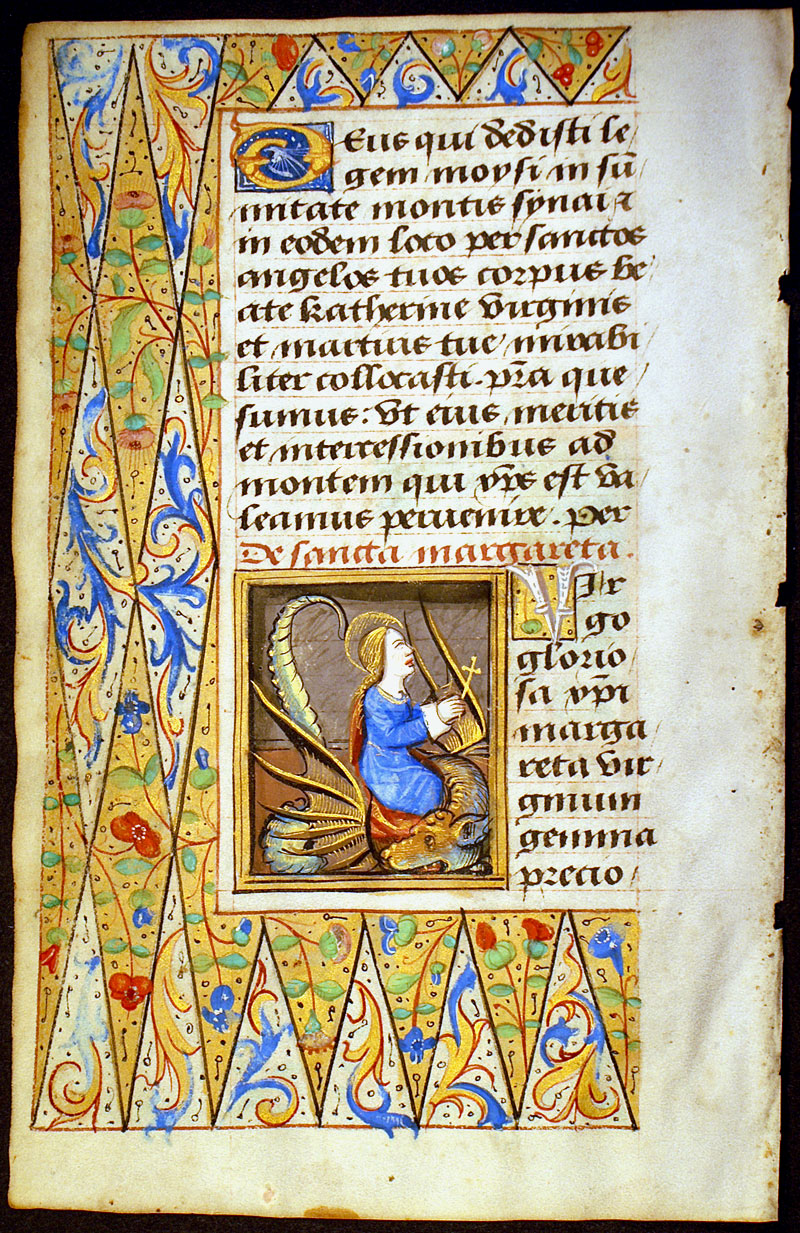 Deus qui dedisti le
gem moysi in sū
mitate montis synai ⁊
in eodem loco per sanctos
angelos tuos corpus be
ate katherine virginis
et martiris tue mirabi
liter collocasti. pr̄a que
sumus: vt eius meritis
et intercessionibus ad
montem qui xp̄s est va
leamus peruenire. Per
De sancta margareta.
Vir
go
glorio
sa xp̄i
marga
reta vir
ginum
gemma
precio